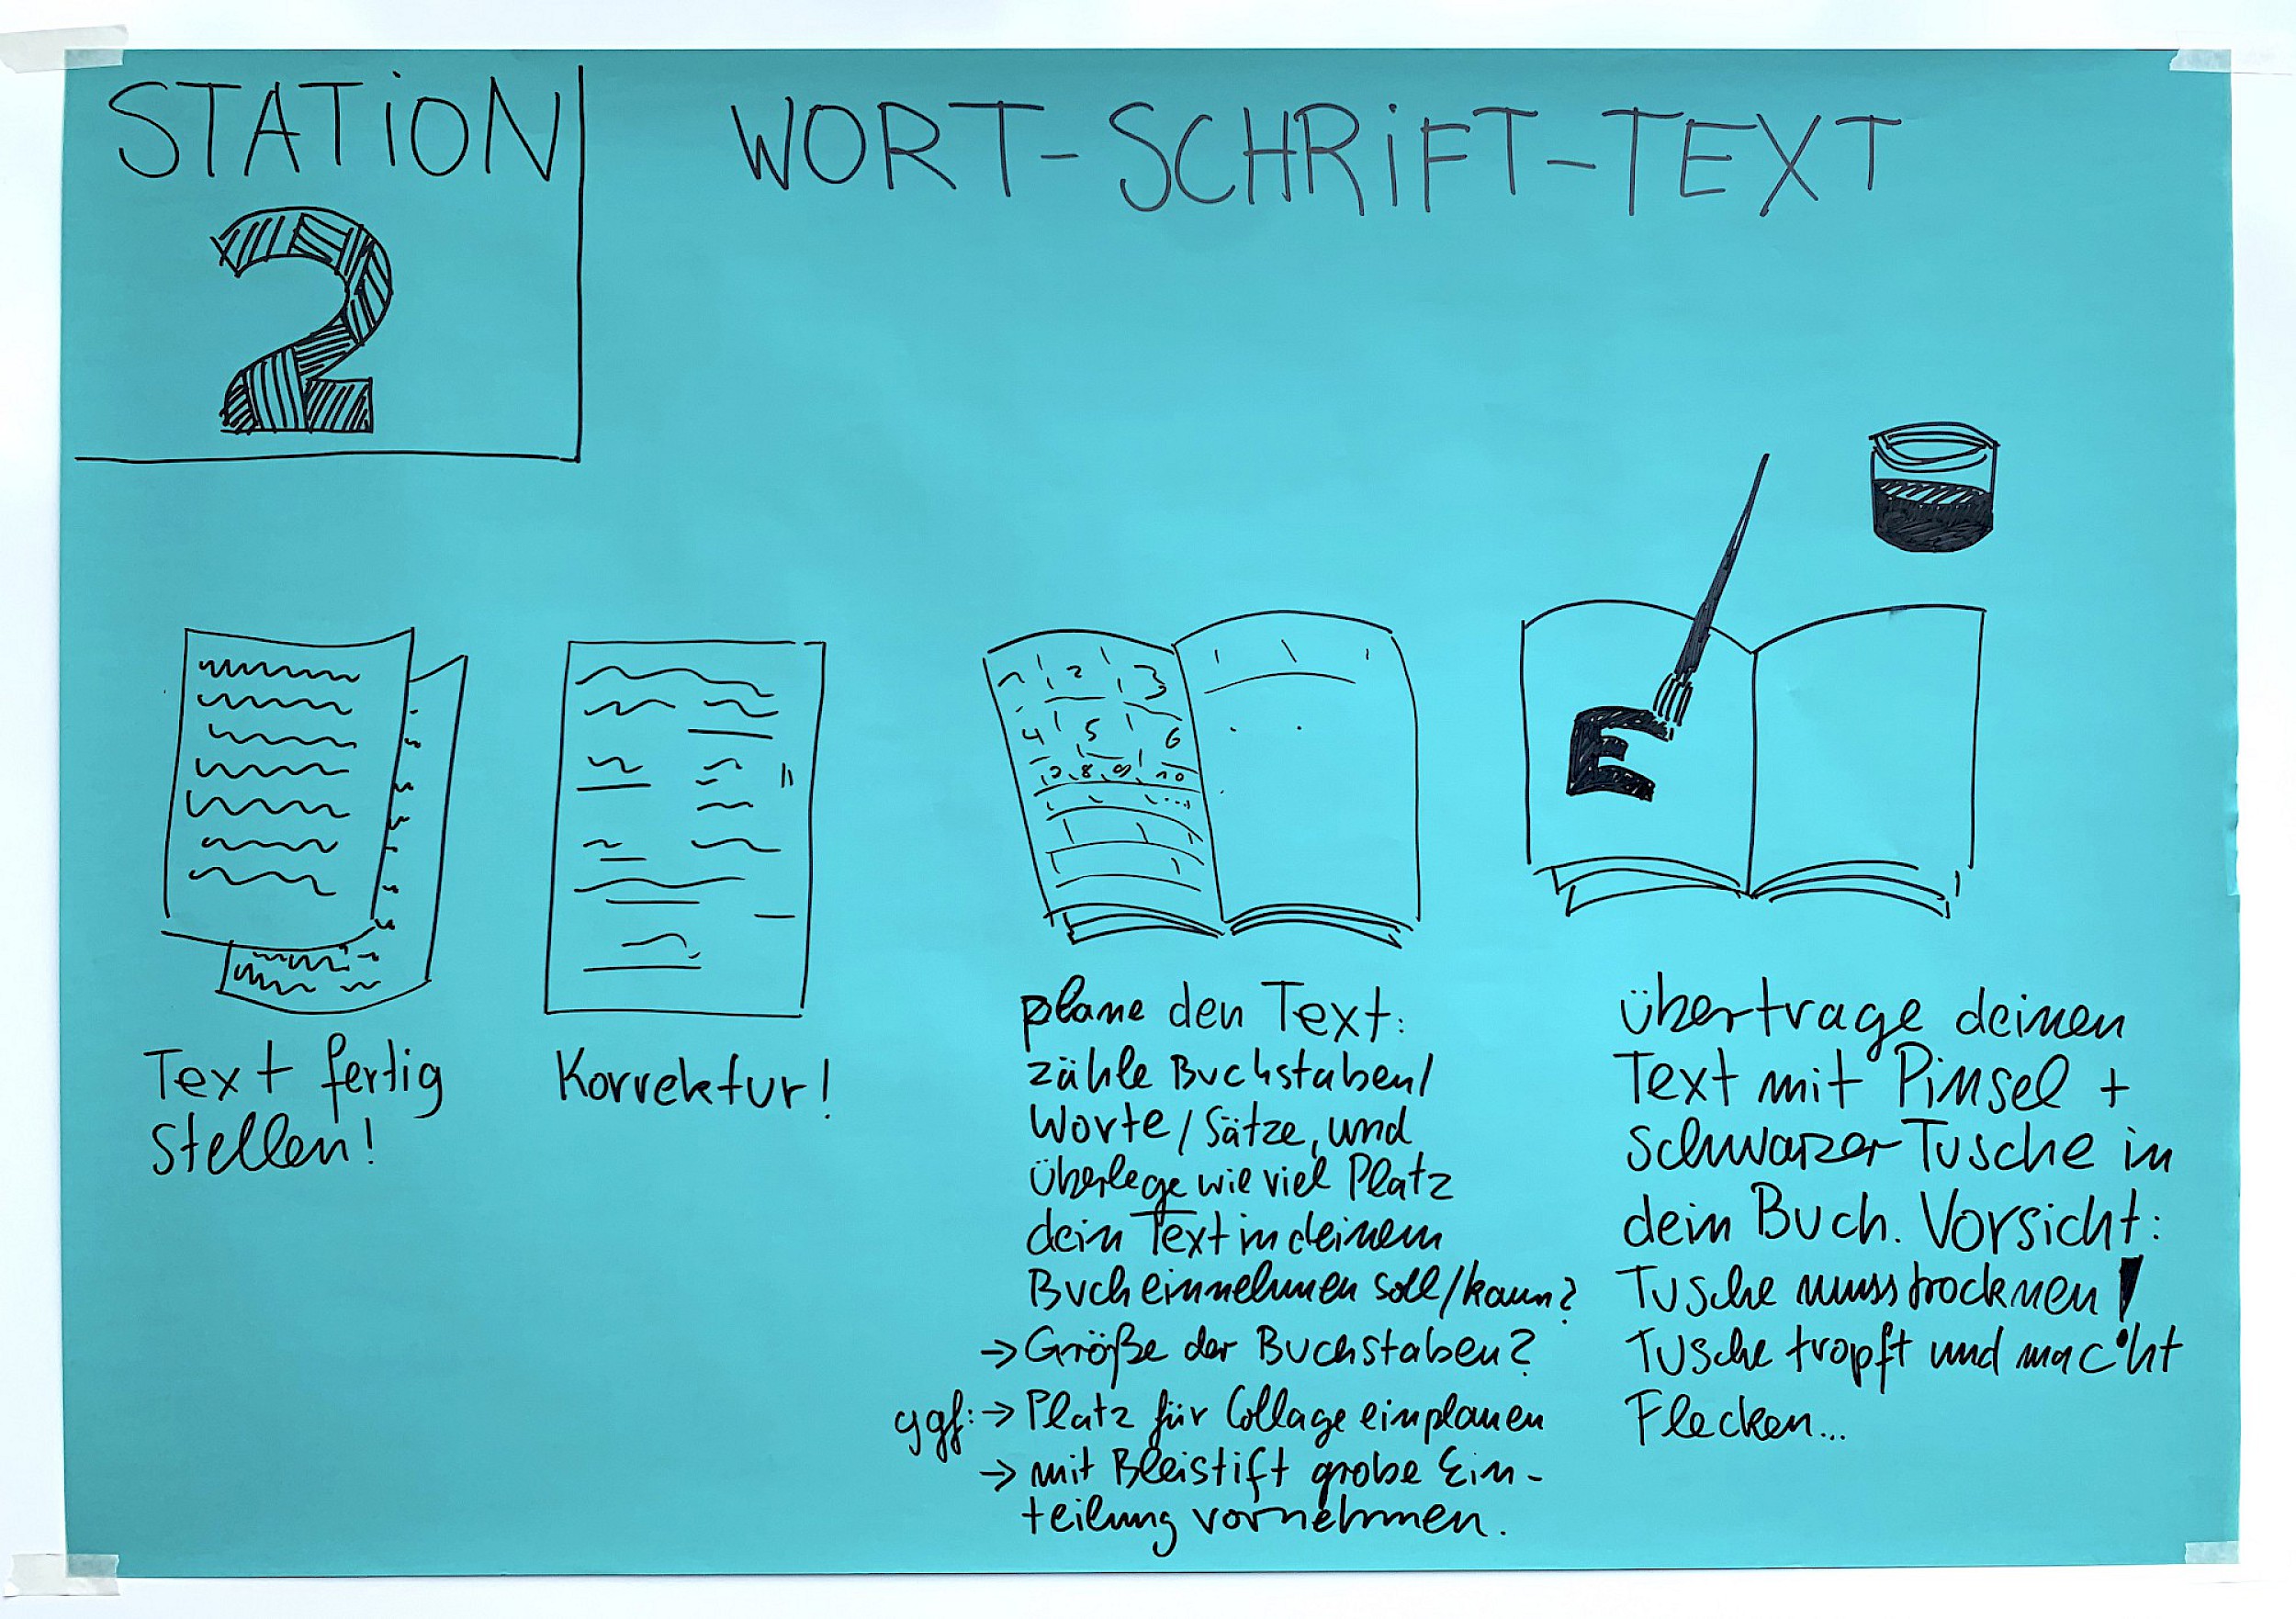 STATiON
2
WORT-SCHRiFT-TEXT
1 2 3
4 5 6
7 8 9 10
E
Text fertig
stellen!
Korrektur!
plane den Text:
zähle Buchstaben/
Worte/Sätze, und
überlege wie viel Platz
dein Text in deinem
Buch einnehmen soll/kann?
→ Größe der Buchstaben?
ggf: → Platz für Collage einplanen
→ mit Bleistift grobe Ein-
teilung vornehmen.
übertrage deinen
Text mit Pinsel +
schwarzer Tusche in
dein Buch. Vorsicht:
Tusche muss trocknen!
Tusche tropft und macht
Flecken...